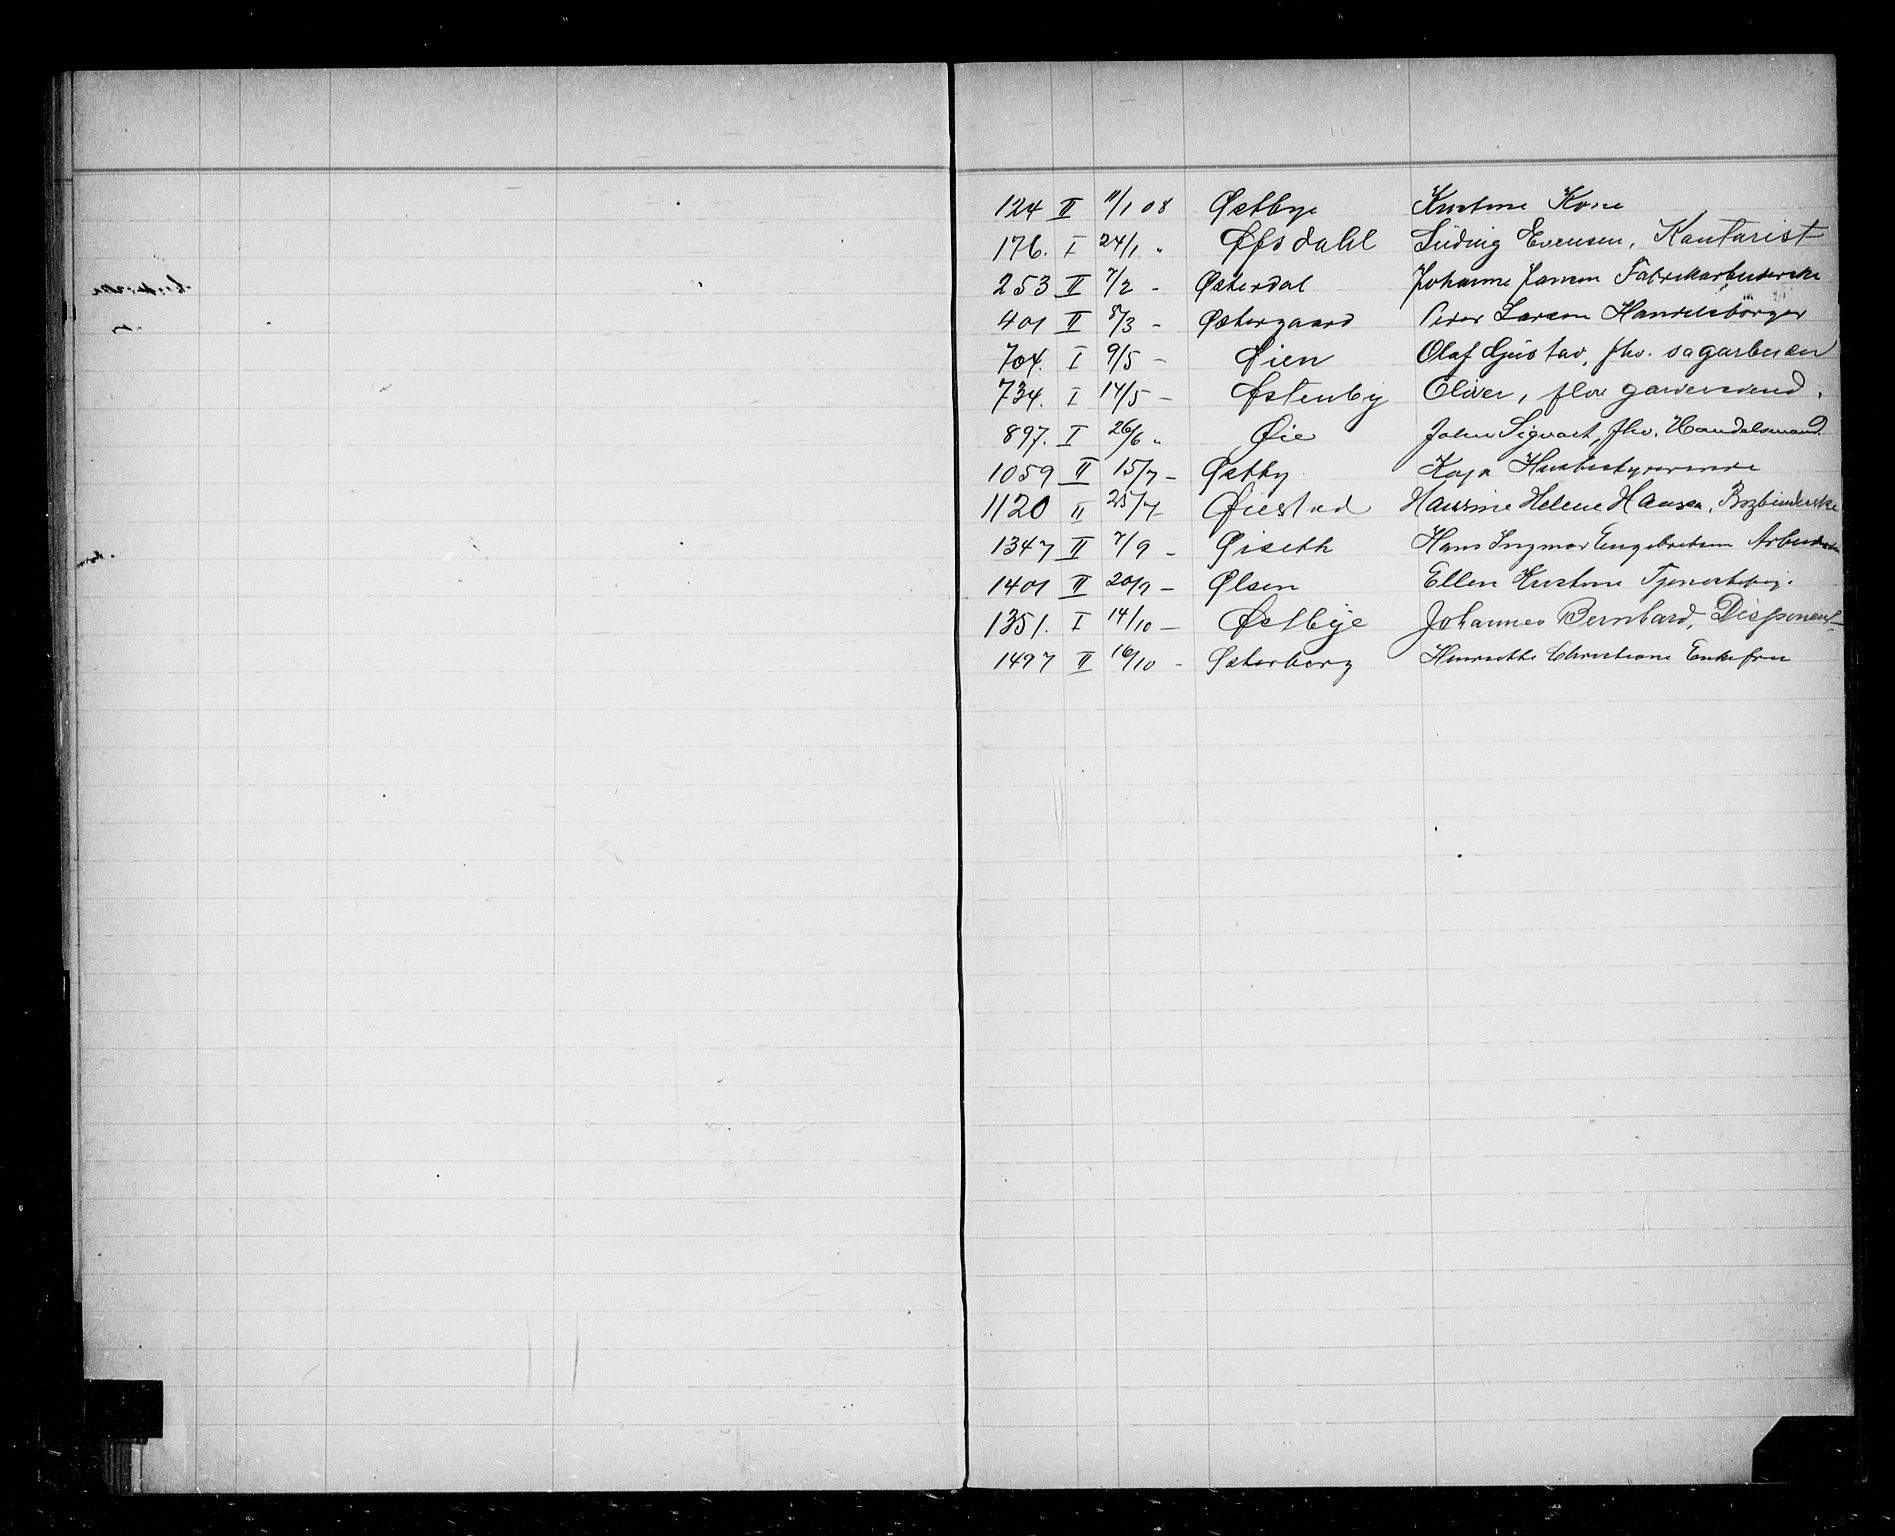 124 II 11/1 08 Østbye Kristine Kone
176. I 24/1 " Øfsdahl Ludvig Evensen, Kontorist
253 II 7/2 - Østerdal Johanne Jansen Fabrikarbeiderske
401 II 8/3 - Østergaard Peder Larsen Handelsborger
704. I 9/5 - Øien Olaf Gustav, fhv. sagarbeider
734. I 14/5 - Østenby Oliver, fhv garversvend.
897. I 26/6 " Øie Johan Sigvart, fhv. Handelsmand.
1059 II 15/7 - Østby Kaja Husbestyrerinde
1120 II 25/7 Øiestad Hansine Helene Hansen, Bogbinderske
1347 II 7/9 - Øiseth Hans Ingmar Engebretsen
1401 II 20/9 - Ølsen Ellen Kristine Tjenestepige.
1351. I 14/10 - Østbye Johannes Bernhard, Disponent
1497 II 16/10 - Østerberg Henriette Christiane Enkefru